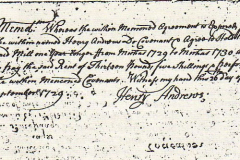 Mem.dm Whereas the within Menconed Agreement is Expired
the within named Henry Andrews Do Covenant & Agree to Hold the
Mill one year longer from Micħas 1729 to Micħas 1730
paying the said Rent of Thirteen Pounds five Shillings &
within Menconed Covenants. Witness my hand this 20 Day of
September 1729.
Henry Andrews,